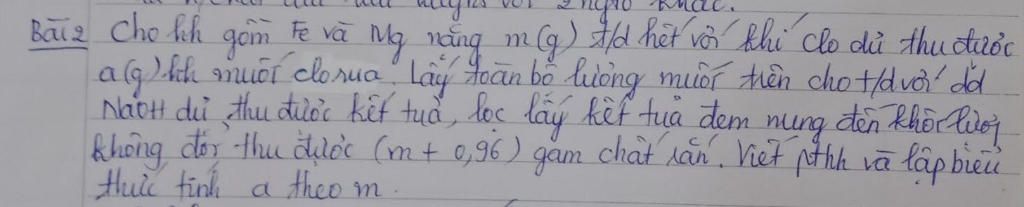 với 2 ngto khác.
Bài 2 Cho hh gồm Fe và Mg nặng m(g) t/d hết với khí clo dư thu được
a(g) hh muối clorua. Lấy toàn bộ lượng muối trên cho t/d với dd
NaOH dư, thu được kết tủa, lọc lấy kết tủa đem nung đến khối lượng
không đổi thu được (m + 0,96) gam chất rắn. Viết pthh và lập biểu
thức tính a theo m.